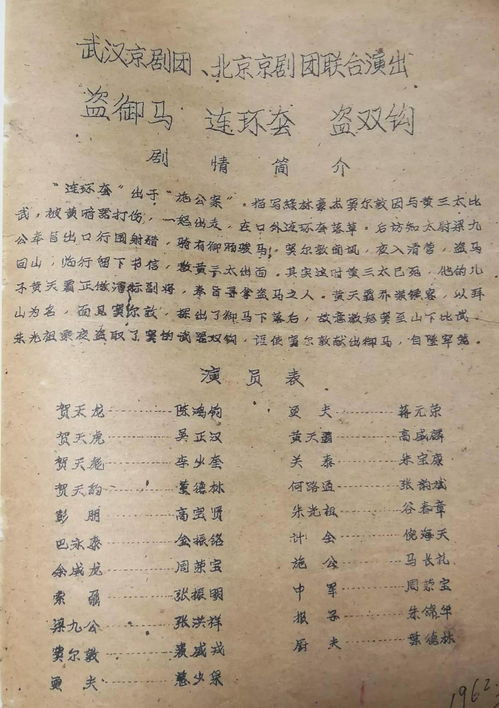 武汉京剧团、北京京剧团联合演出
盗御马 连环套 盗双钩
剧情简介
“连环套”出于“施公案”。描写绿林豪杰窦尔敦因与黄三太比
武,被黄暗器打伤,一怒出走,在口外连环套落草。后访知太尉梁九
公奉旨出口行围射猎,骑有御赐骏马,窦尔敦闻讯,夜入清营,盗马
回山,临行留下书信,教黄三太出面。其实这时黄三太已死,他的儿
子黄天霸正做漕标副将,奉旨寻拿盗马之人。黄天霸乔装镖客,以拜
山为名,面见窦尔敦,探出了御马下落后,故意激怒窦至山下比武。
朱光祖乘夜盗取了窦的武器双钩,诓使窦尔敦献出御马,自陷牢笼。
演员表
贺天龙 陈鸿钧 更夫 蒋元荣
贺天虎 吴正汉 黄天霸 高盛麟
贺天彪 李少奎 关泰 朱宝康
贺天豹 董德林 何路通 张韵斌
彭朋 高宝贤 朱光祖 谷春章
巴永泰 金振铭 计全 倪海天
余威龙 周荣宝 施公 马长礼
索 张振明 中军 周荣宝
梁九公 张洪祥 报子 朱锦华
窦尔敦 裘盛戎 厨夫 董德林
更夫 慈少泉
1962.